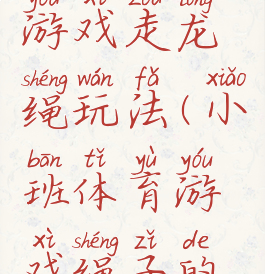 yóu xì zǒu lóng
游戏走龙
shéng wán fǎ xiǎo
绳玩法(小
bān tǐ yù yóu
班体育游
xì shéng zǐ de
戏绳子的